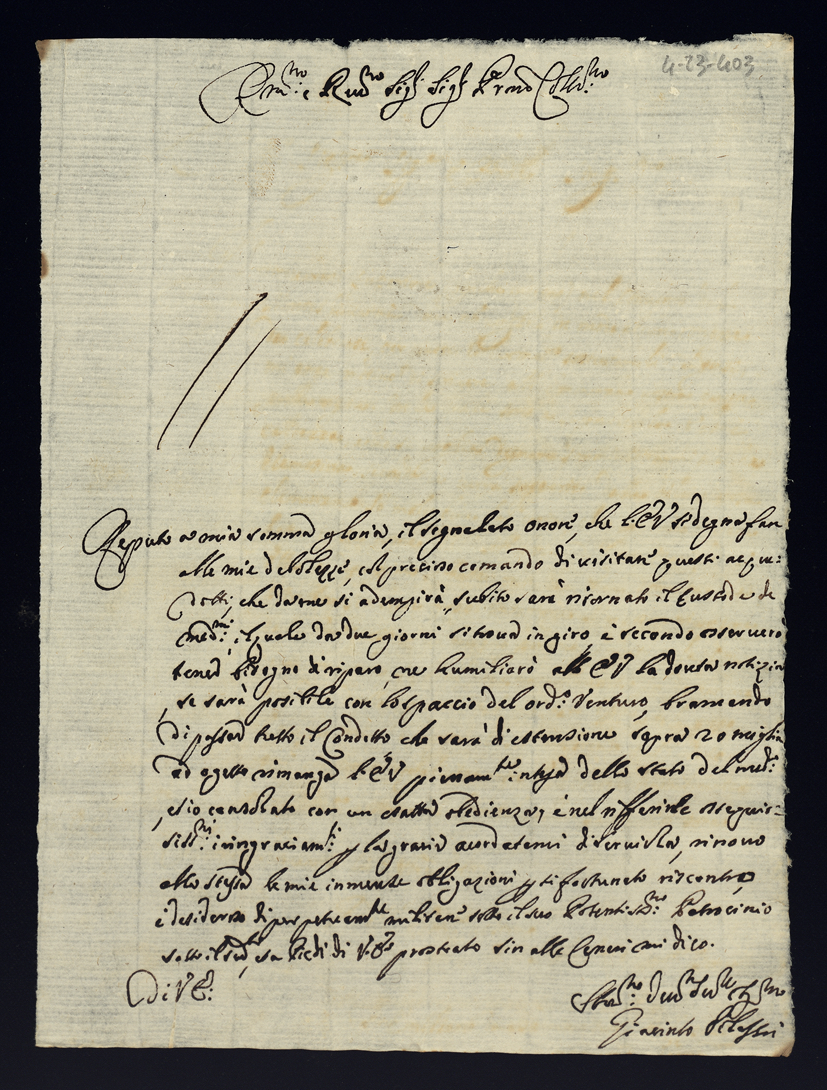 4-23-403
Em:mo e Rev:mo Sig:r Sig:r P:rone Coll:mo
Reputo a mia somma gloria, il segnalato onore, che l'E.V. si degna fare
alle mie debolezze, col preciso comando di visitare questi aque:
dotti, che da me si adempirà, subito sarà ritornato il Custode de
med:mi, il quale da due giorni si trova in giro, e secondo osserverò
bisogno di riparo, ne humiliarò alla E.V. la dovuta notizia
, se sarà possibile con lo spaccio del ord:o Venturo, bramando
di passar tutto il Condotto che sarà di estensione sopra 20 miglia
ad ogetto rimanga l'E.V. pienam:te intesa dello stato del med:o
, et io consolato con un esatta obedienza, e nel
sis:mi ringraziam:ti p la grazia acordatami di servirla, rinovo
alla stessa le mie inmense obligazioni p riscontro
e desideroso di perpetuam:te sotto il suo Potentis:mo Patrocinio
sotto il a Piedi di V.E. prostrato sin alle Ceneri mi dico.
Di V.E:
Giacinto